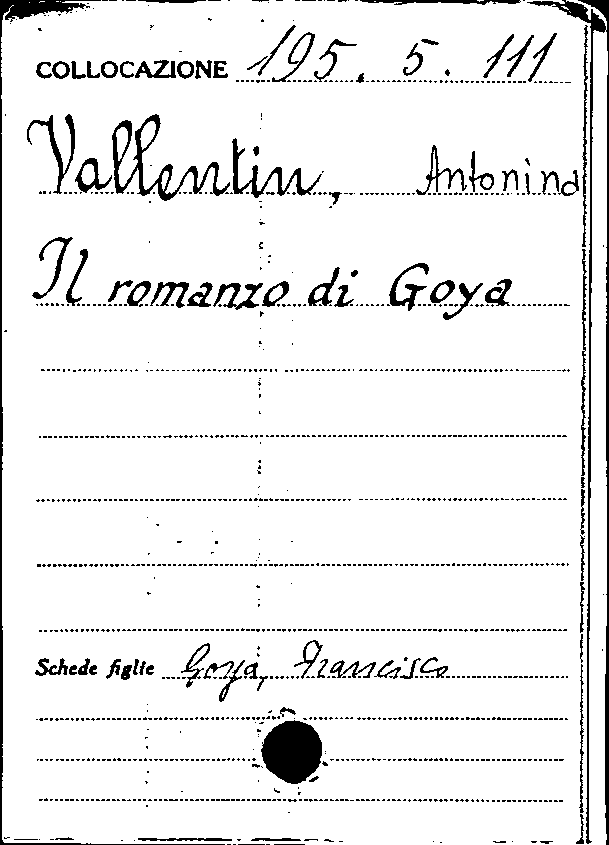 COLLOCAZIONE 195. 5. 111
Vallentin, Antonina
Il romanzo di Goya
Schede figlie Goya, Francisco